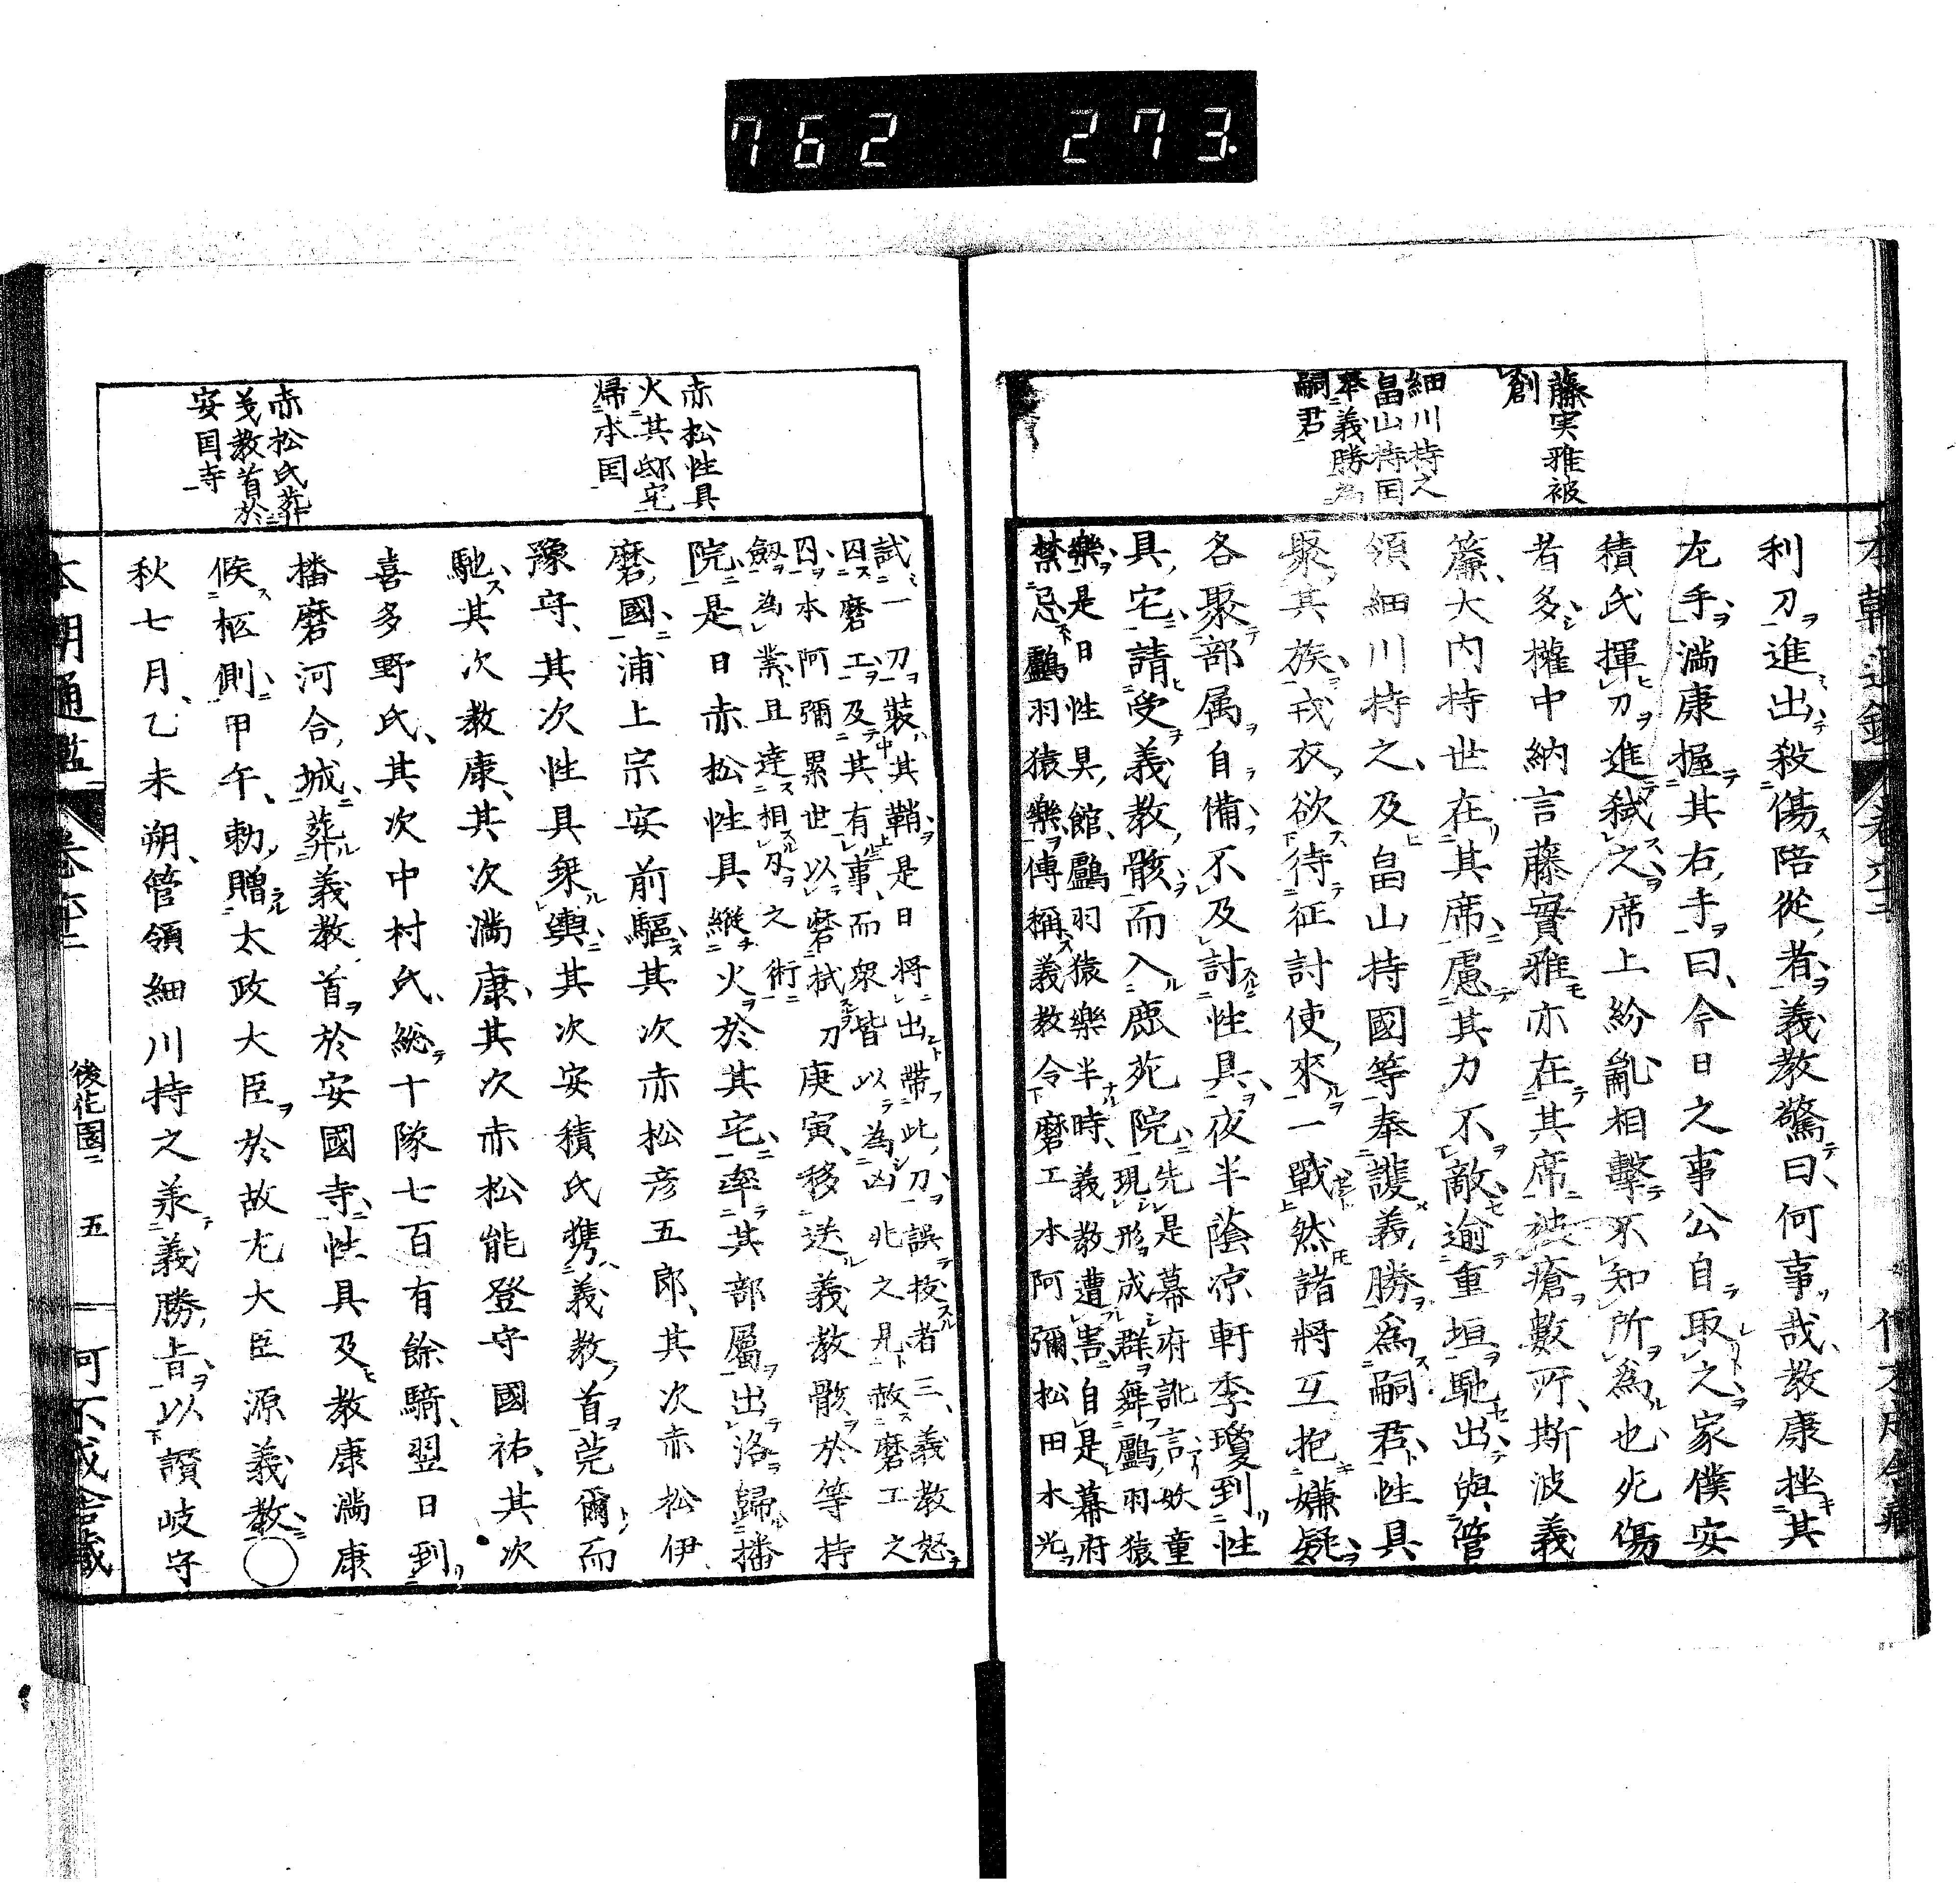 762 273.
藤実雅被
創
細川持之
畠山持国
奉義勝為
嗣君
利刀進出殺傷陪從者義教驚曰何事哉教康挫其
左手満康握其右手曰今日之事公自取之家僕安
積氏揮刀進弑之席上紛亂相擊不知所爲也死傷
者多權中納言藤實雅亦在其席被瘡數所斯波義
簾大内持世在其席慮其力不敵逾重垣馳出與管
領細川持之及畠山持國等奉護義勝爲嗣君性具
聚其族戎衣欲待征討使來一戰然諸將互抱嫌疑
各聚部属自備不及討性具夜半蔭凉軒季瓊到性
具宅請受義教骸而入鹿苑院先是幕府訛言妖童
現形成群舞鸕羽猿
樂是日性具館鸕羽猿樂半時義教遭害自是幕府
禁忌鸕羽猿樂傳稱義教令磨工本阿彌松田本光
赤松性具
火其邸宅
帰本国
赤松氏葬
义教首於
安国寺
試一刀裝其鞘是日將出帶此刀誤抜者三義教怒
囚磨工及其有事而衆皆以為凶兆之見赦磨工之
囚本阿彌累世以磨拭刀
劔為業且達相刄之術
庚寅移送義教骸於等持
院是日赤松性具縦火於其宅率其部屬出洛歸播
磨國浦上宗安前驅其次赤松彦五郎其次赤松伊
豫守其次性具乗輿其次安積氏携義教首莞爾而
馳其次教康其次満康其次赤松能登守國祐其次
喜多野氏其次中村氏総十隊七百有餘騎翌日到
播磨河合城葬義教首於安國寺性具及教康満康
候柩側甲午勅贈太政大臣於故左大臣源義教○
秋七月乙未朔管領細川持之承義勝旨以讃岐守
本朝通鑑 卷六十二 後花園二 五